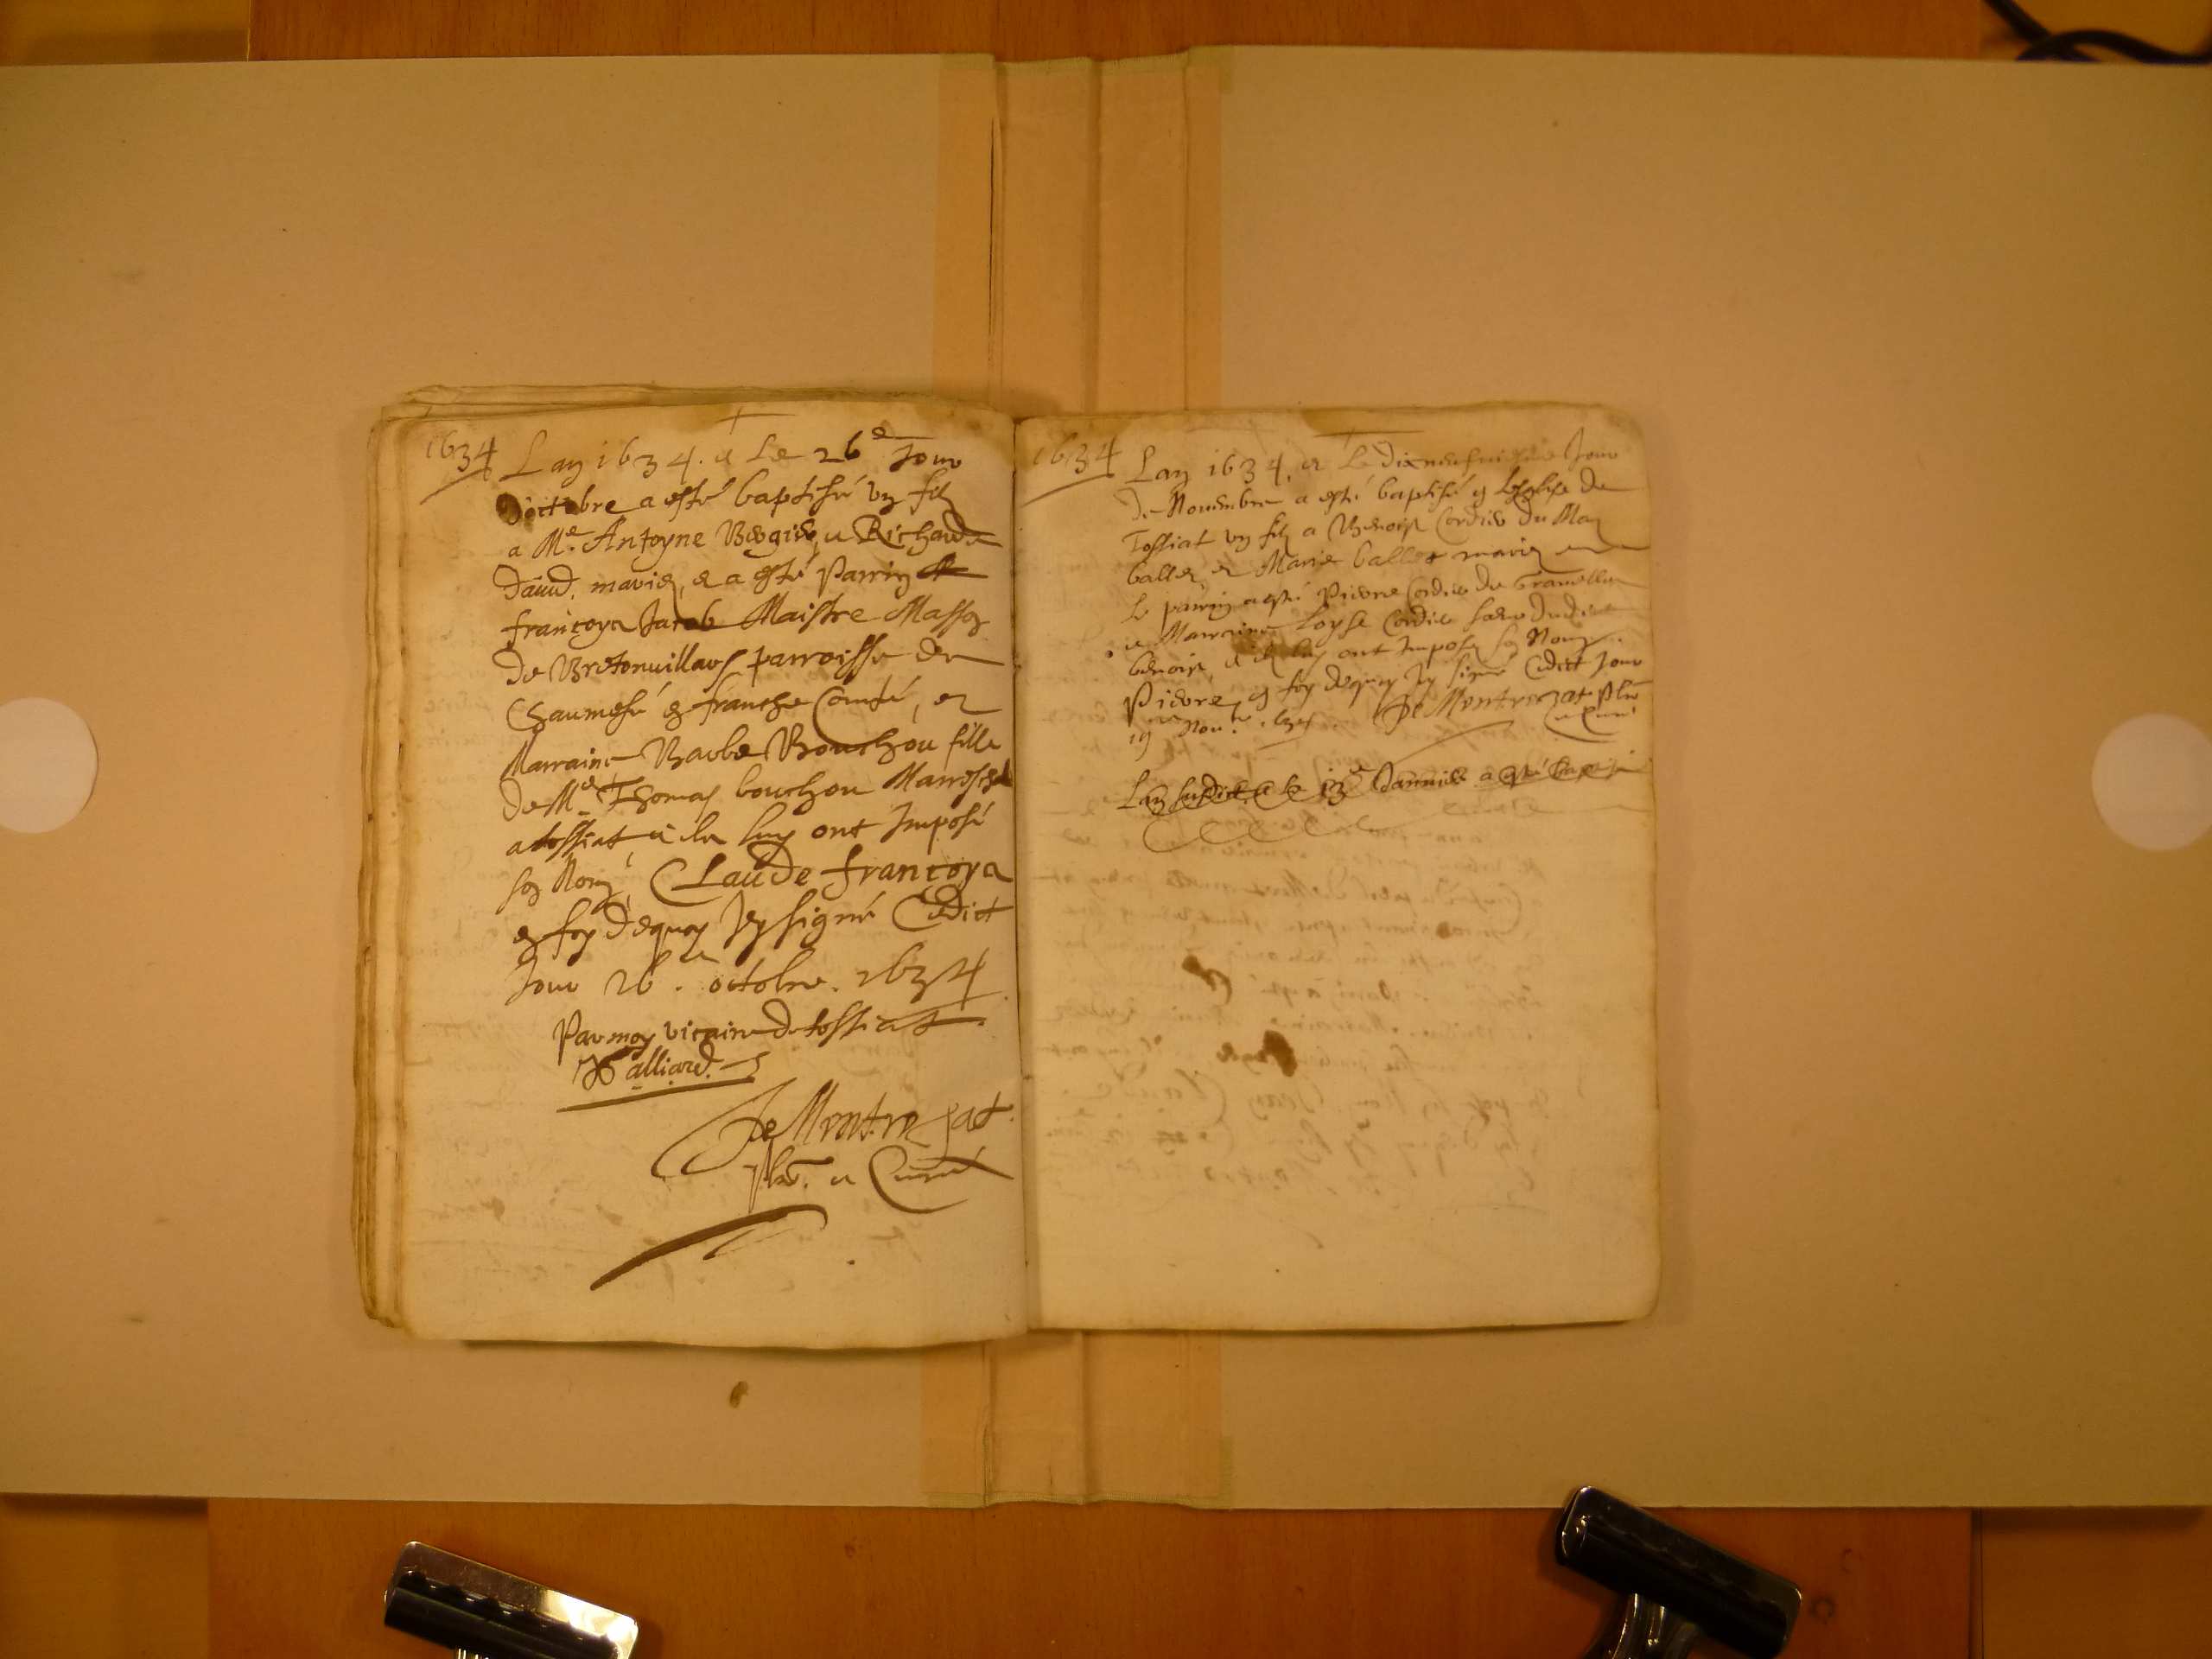 1634
Lan 1634. et Le 26e Jour
Doictobre a esté baptisé un filz
a Me. Antoyne Vergier et Richarde
Daud. mariez, et a esté Parrin
françoys Jacob Maistre Masson
de Bretonvillars parroisse de
Chaumesé en franche Comté, et
Marraine Barbe Bouchou fille
de Me Thomas bouchou Mareschal
a tossiat, et ilz luy ont Imposé
son Nom, Claude françoys
en foy dequoy Jey signé Cedict
Jour 26e. octobre. 1634
Par moy vicaire de tossiat.
Halliard.
De Montrozat.
pbre. et Curé
1634
Lan 1634, et Le dixneufviesme Jour
de Novembre a esté baptisé en Leglise de
Tossiat un filz a Benoist Cordier du Maz
ballet, et Marie ballet mariez
le parrin a esté Pierre Cordier de
et Marraine Loyse Cordier sœur dudict
benoist, et ilz luy ont Imposé son Nom
Pierre, en foy dequoy Jey signé Cedict Jour
19e Nov.bre. 1634. De Montrozat pbre
et Curé
Lan susdict et le 13e Janvier a esté baptisé